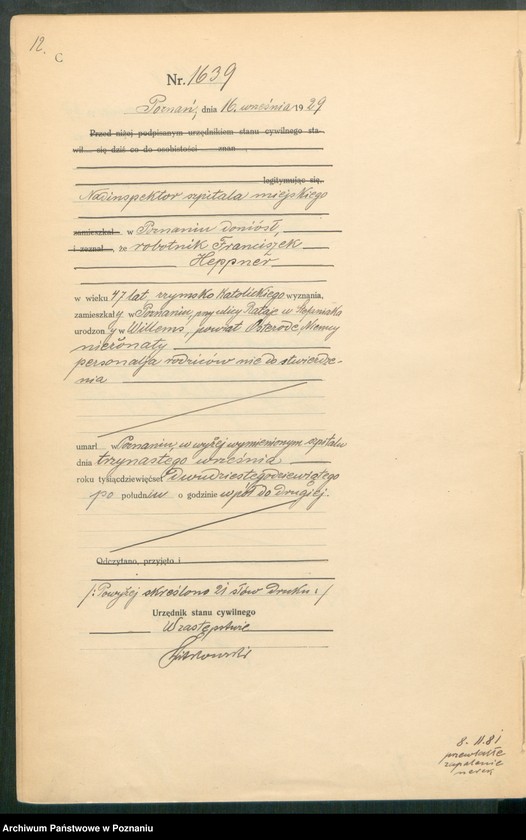 12.
C
Nr. 1639
Poznań, dnia 16. września 1929
Przed niżej podpisanym urzędnikiem stanu cywilnego sta-
wił się dziś co do osobistości znan ,
legitymując się,
Nadinspektor szpitala miejskiego
zamieszkał w Poznaniu doniósł,
i zeznał, że robotnik Franciszek
Heppner
w wieku 47 lat, rzymsko katolickiego wyznania,
zamieszkały w Poznaniu, przy ulicy Rataje u Stefaniaka
urodzony w Willems, powiat Osterode, Niemcy
nieżonaty
personalja rodziców nie do stwierdze-
nia
umarł w Poznaniu, w wyżej wymienionym szpitalu
dnia trzynastego września
roku tysiącdziewięćset dwudziestegodziewiątego
po południu o godzinie wpół do drugiej.
Odczytano, przyjęto i
/: Powyżej skreślono 21 słów druku :/
Urzędnik stanu cywilnego
W zastępstwie
8. 11. 81
przewlekłe
zapalenie
nerek
Archiwum Państwowe w Poznaniu